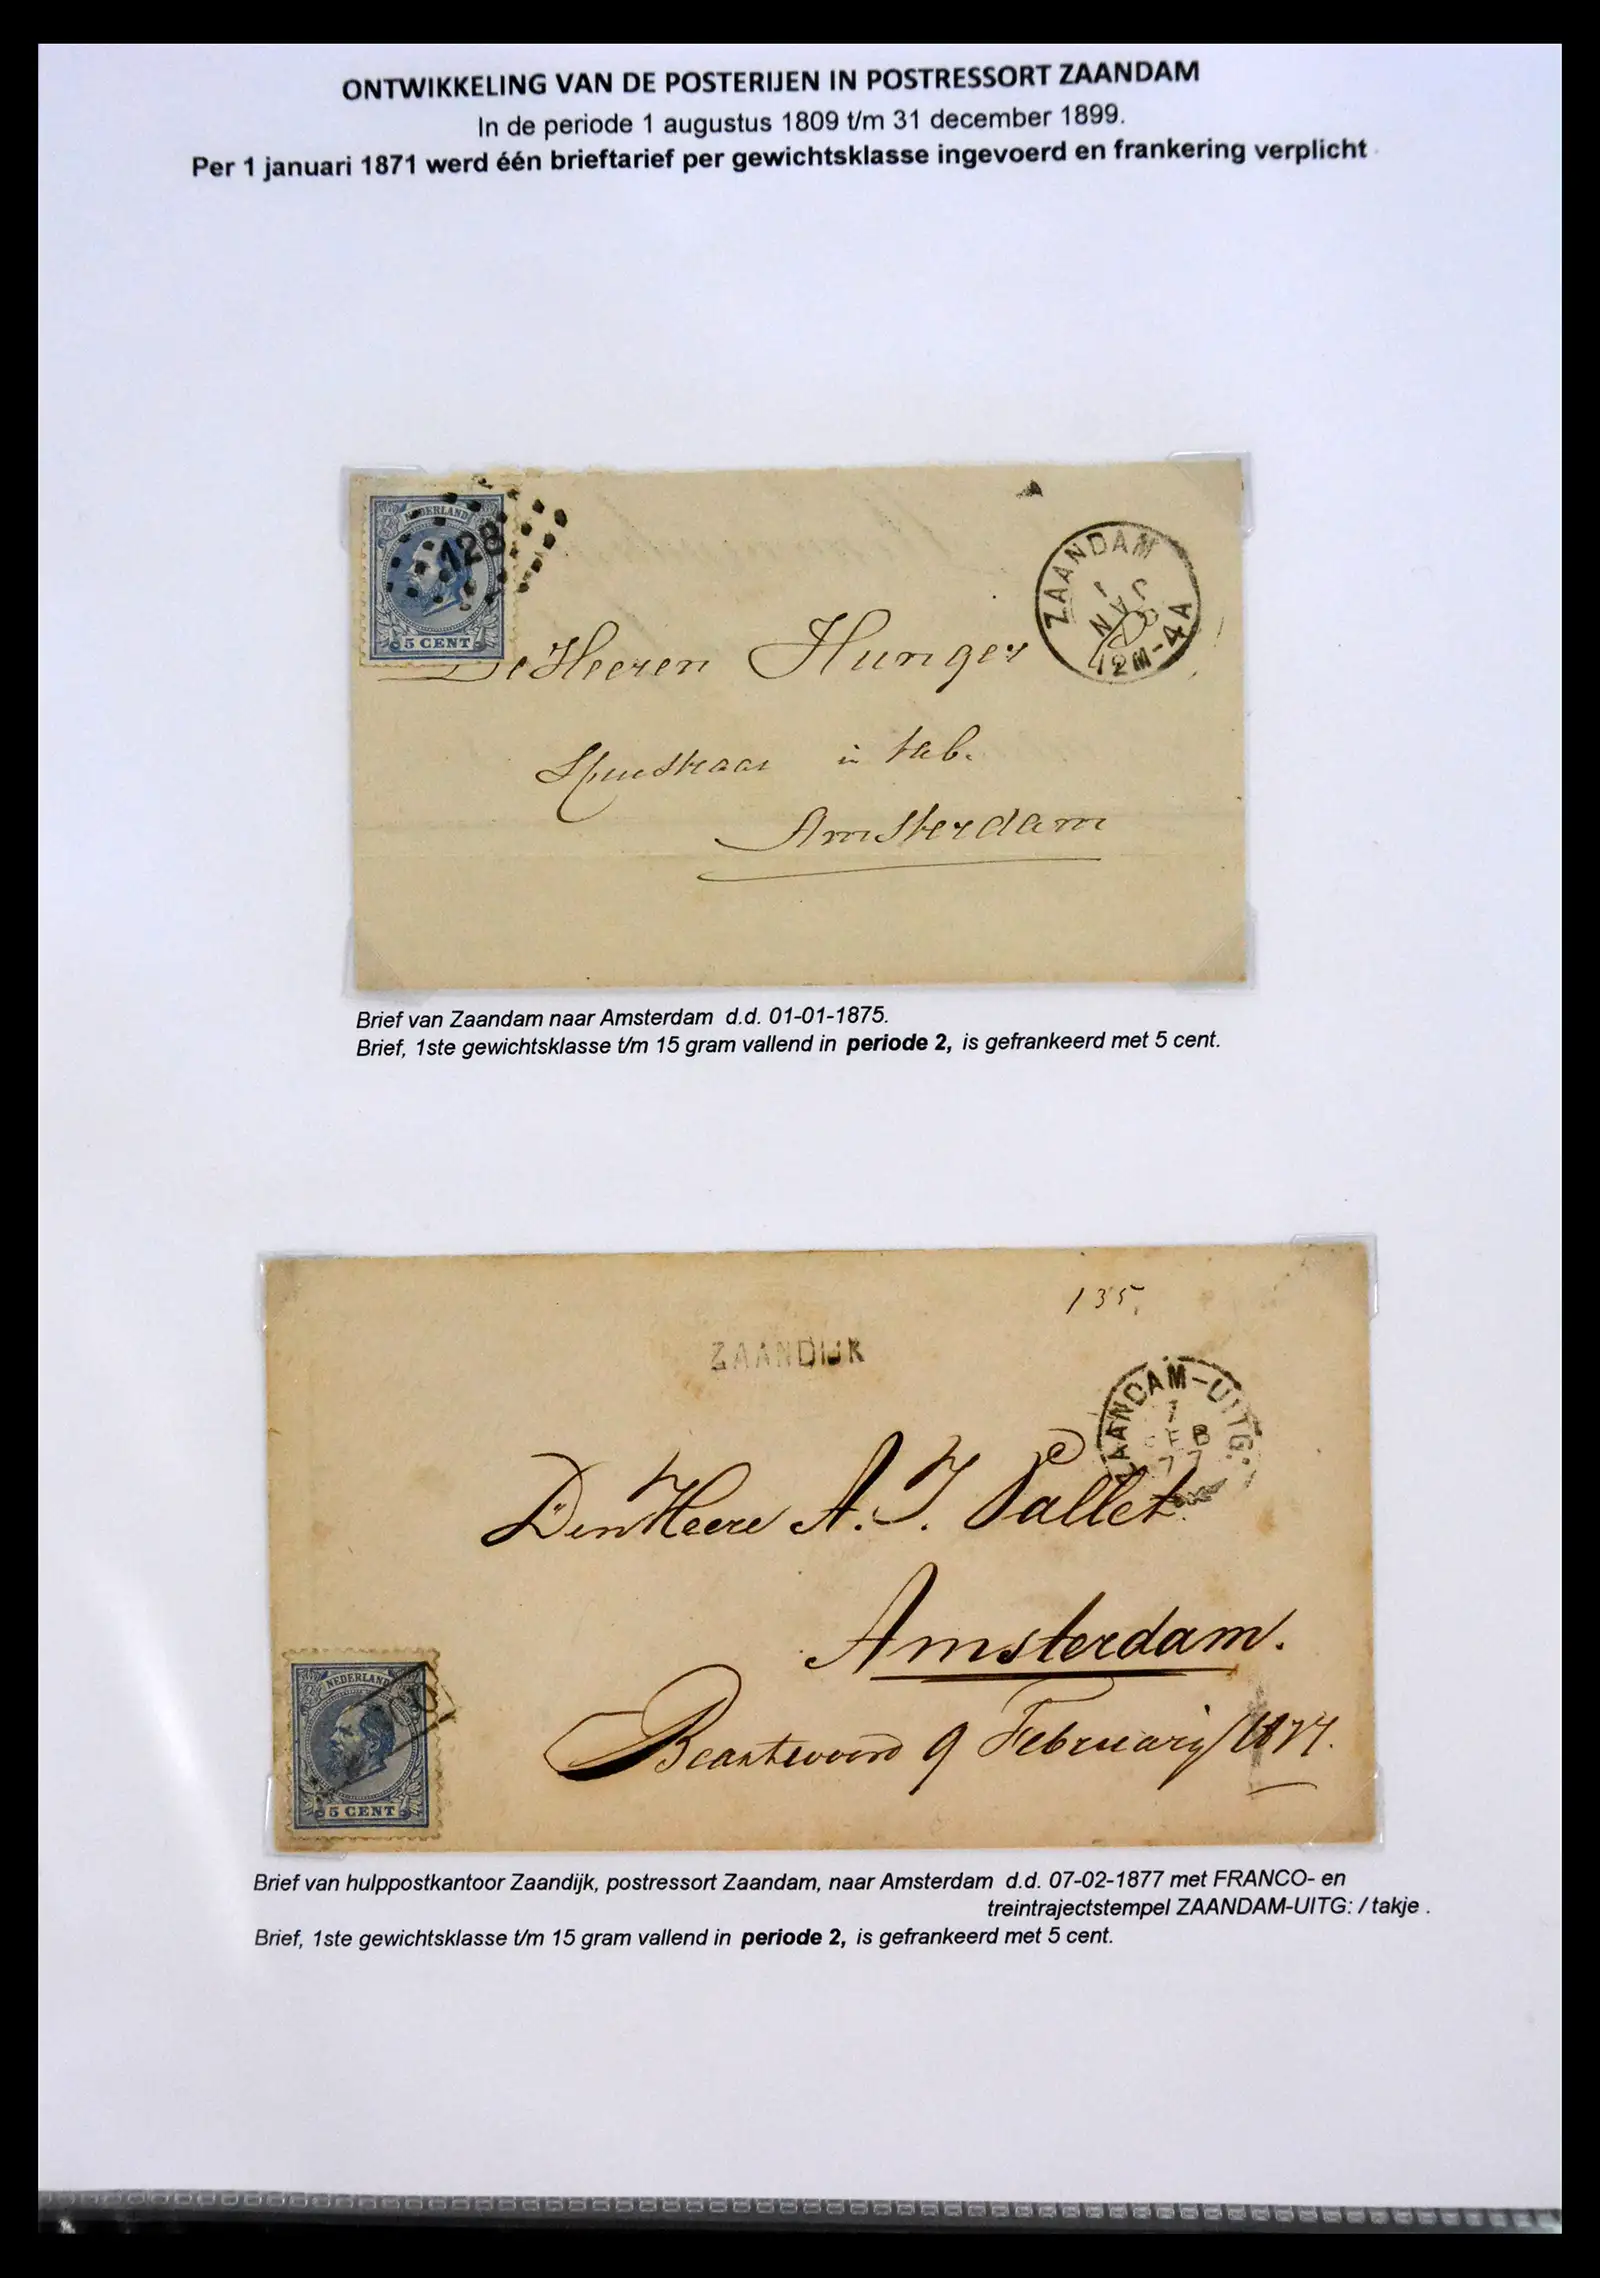 ONTWIKKELING VAN DE POSTERIJEN IN POSTRESSORT ZAANDAM
In de periode 1 augustus 1809 t/m 31 december 1899.
Per 1 januari 1871 werd één brieftarief per gewichtsklasse ingevoerd en frankering verplicht
NEDERLAND
128
5 CENT
ZAANDAM
1
JAN
12M-4A
De Heeren Hunger
in tab.
Amsterdam
Brief van Zaandam naar Amsterdam d.d. 01-01-1875.
Brief, 1ste gewichtsklasse t/m 15 gram vallend in periode 2, is gefrankeerd met 5 cent.
135,
ZAANDIJK
ZAANDAM-UITG:
7
FEB
77
Den Heere A. J. Pallet
Amsterdam.
NEDERLAND
5 CENT
Beantwoord 9 February/1877.
Brief van hulppostkantoor Zaandijk, postressort Zaandam, naar Amsterdam d.d. 07-02-1877 met FRANCO- en
treintrajectstempel ZAANDAM-UITG: / takje .
Brief, 1ste gewichtsklasse t/m 15 gram vallend in periode 2, is gefrankeerd met 5 cent.